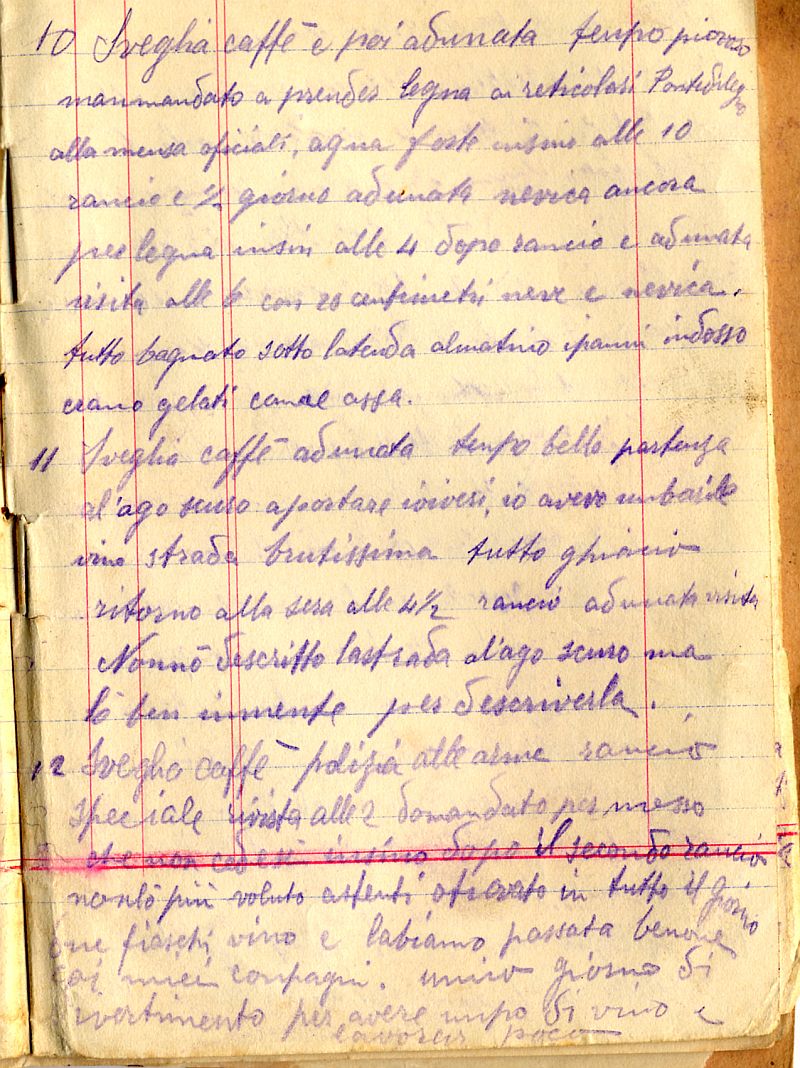 10 Sveglia caffè e poi adunata tempo piovoso
manmandato a prendes legna ai reticolati Pontedilegno
alla mensa oficiali, aqua forte insino alle 10
rancio e ½ giorno adunata nevica ancora
per legna insin alle 4 dopo rancio e adunata
visita alle 6 con 20 centimetri neve e nevica.
tutto bagnato sotto latenda almatino ipanni indosso
erano gelati come assa.
11 Sveglia caffè adunata tempo bello partenza
al'ago scuro aportare iviveri, io avevo unbarile
vino strada brutissima tutto ghiacio
ritorno alla sera alle 4½ rancio adunata visita
Nonnò descritto lastrada al'ago scuro ma
lò ben inmente per descriverla.
12 Sveglia caffè polizia alle arme rancio
speciale rivista alle 2 domandato permesso
che non insino dopo il secondo rancio
nonlò più voluto in tutto il giorno
fiaschi vino e labiamo passata benone
miei conpagni. unico giorno di
per avere unpo di vino e
lavorar poco